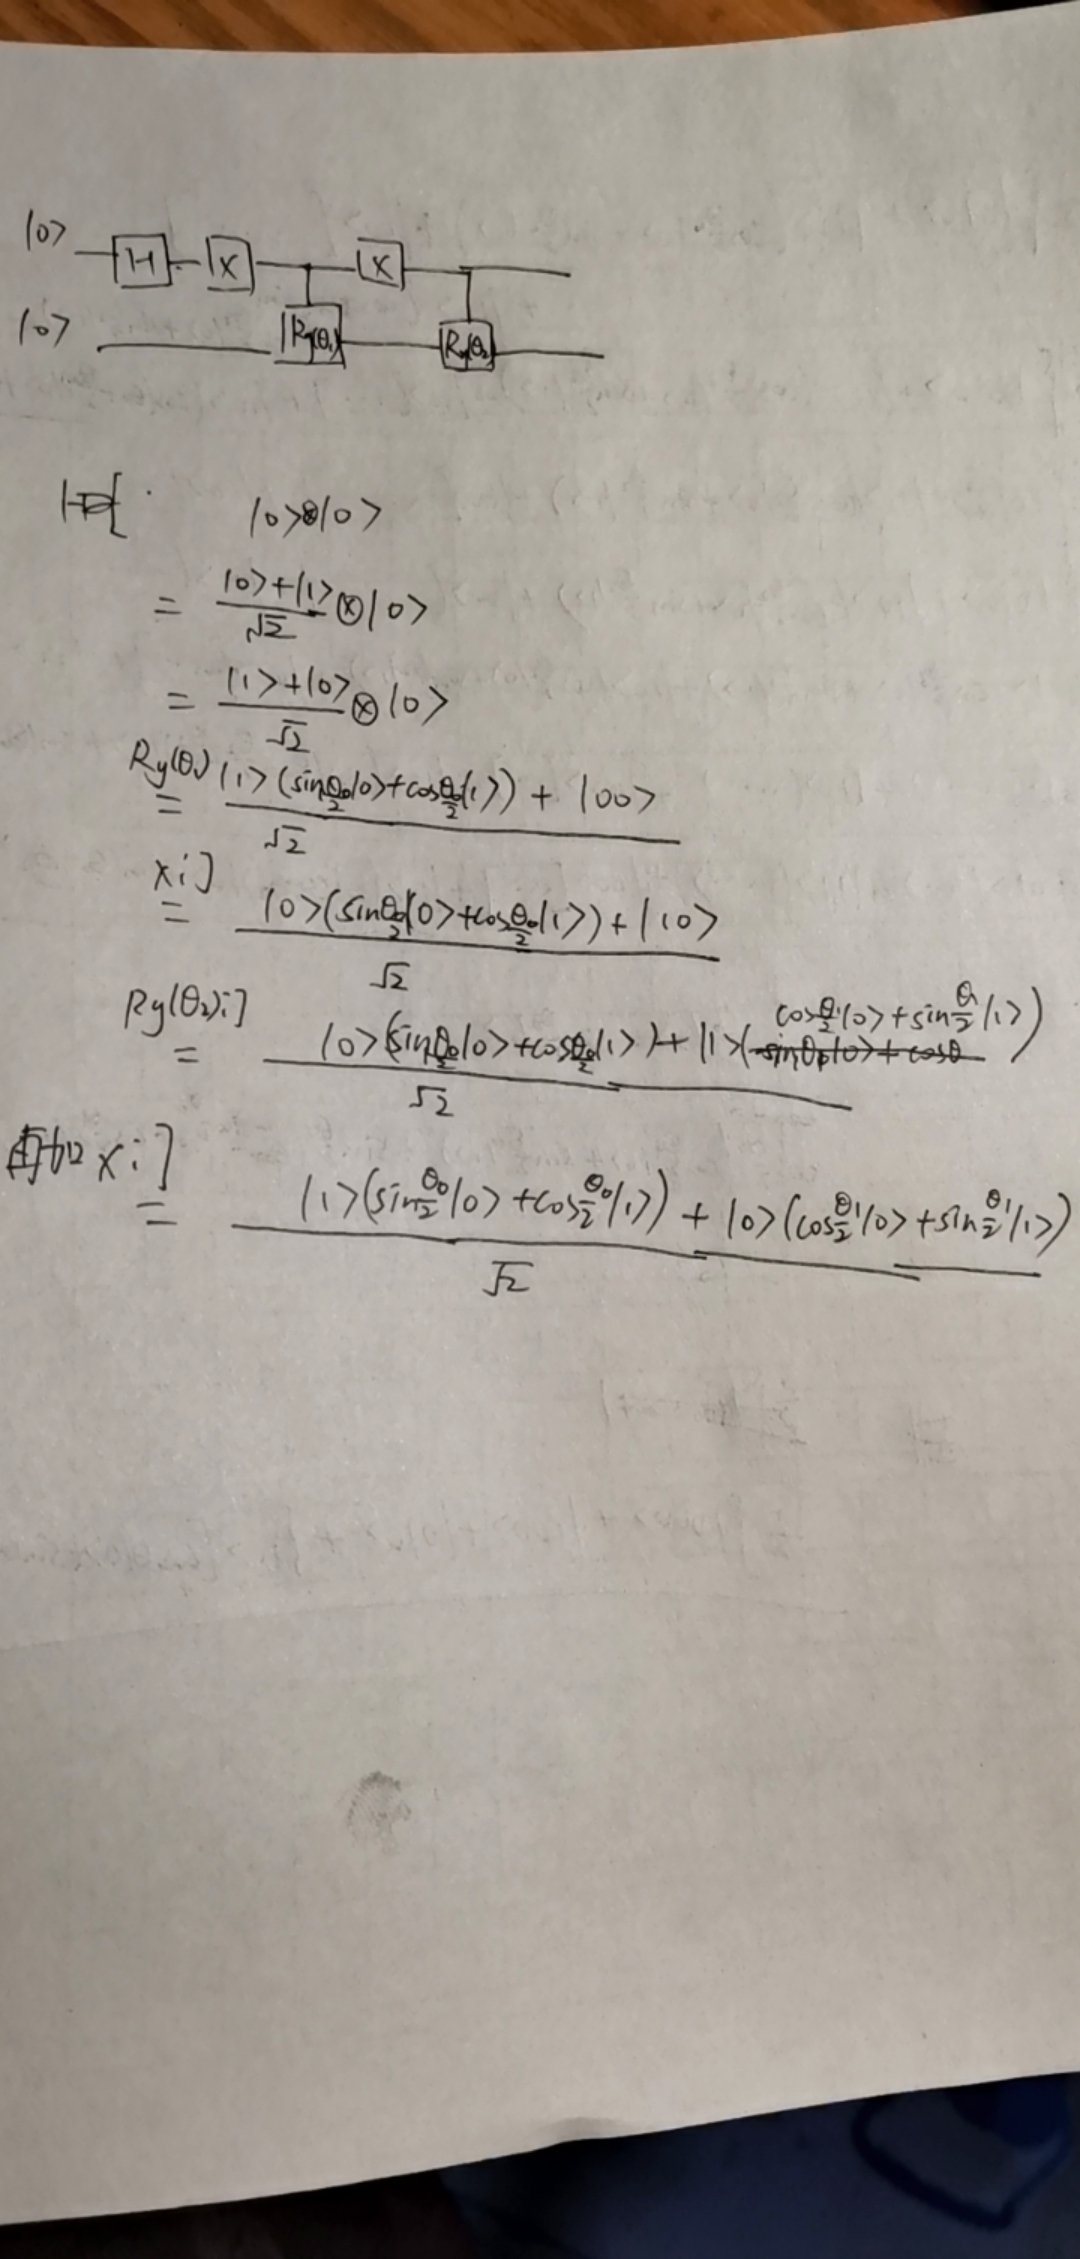 |0> H X X
|0> Ry(θ₁) Ry(θ₂)
H门 |0>⊗|0>
= (|0>+|1>)/√2 ⊗|0>
= (|1>+|0>)/√2 ⊗|0>
Ry(θ₁) = (|1>(sin θ₀/2 |0>+cos θ₀/2 |1>) + |00>)/√2
X门 = (|0>(sin θ₀/2 |0>+cos θ₀/2 |1>)+|10>)/√2
Ry(θ₂)门 = (|0>(sin θ₀/2 |0>+cos θ₀/2 |1>)+|1>(cos θ₁/2 |0>+sin θ₁/2 |1>))/√2
再加X门 = (|1>(sin θ₀/2 |0>+cos θ₀/2 |1>)+|0>(cos θ₁/2 |0>+sin θ₁/2 |1>))/√2